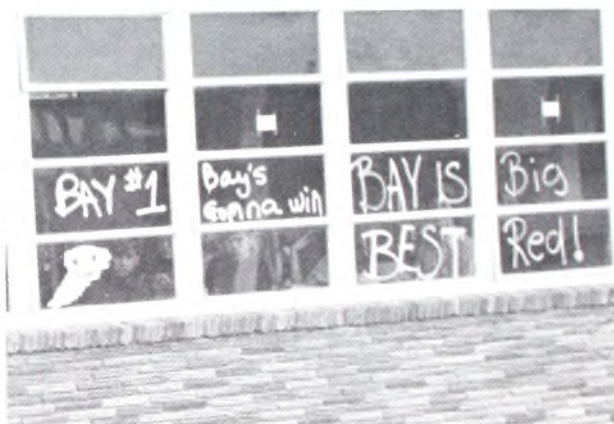 BAY #1
Bay's
Gonna win
BAY IS
BEST
Big
Red!